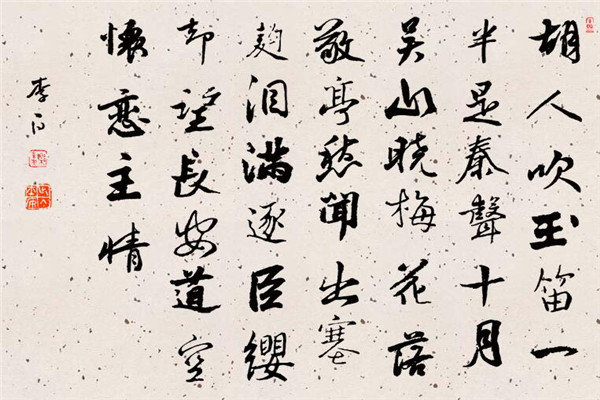 胡人吹玉笛一
半是秦聲十月
吴山晓梅花落
敬亭愁聞出塞
泪滿逐臣纓
却望長安道空
懷恋主情
李白